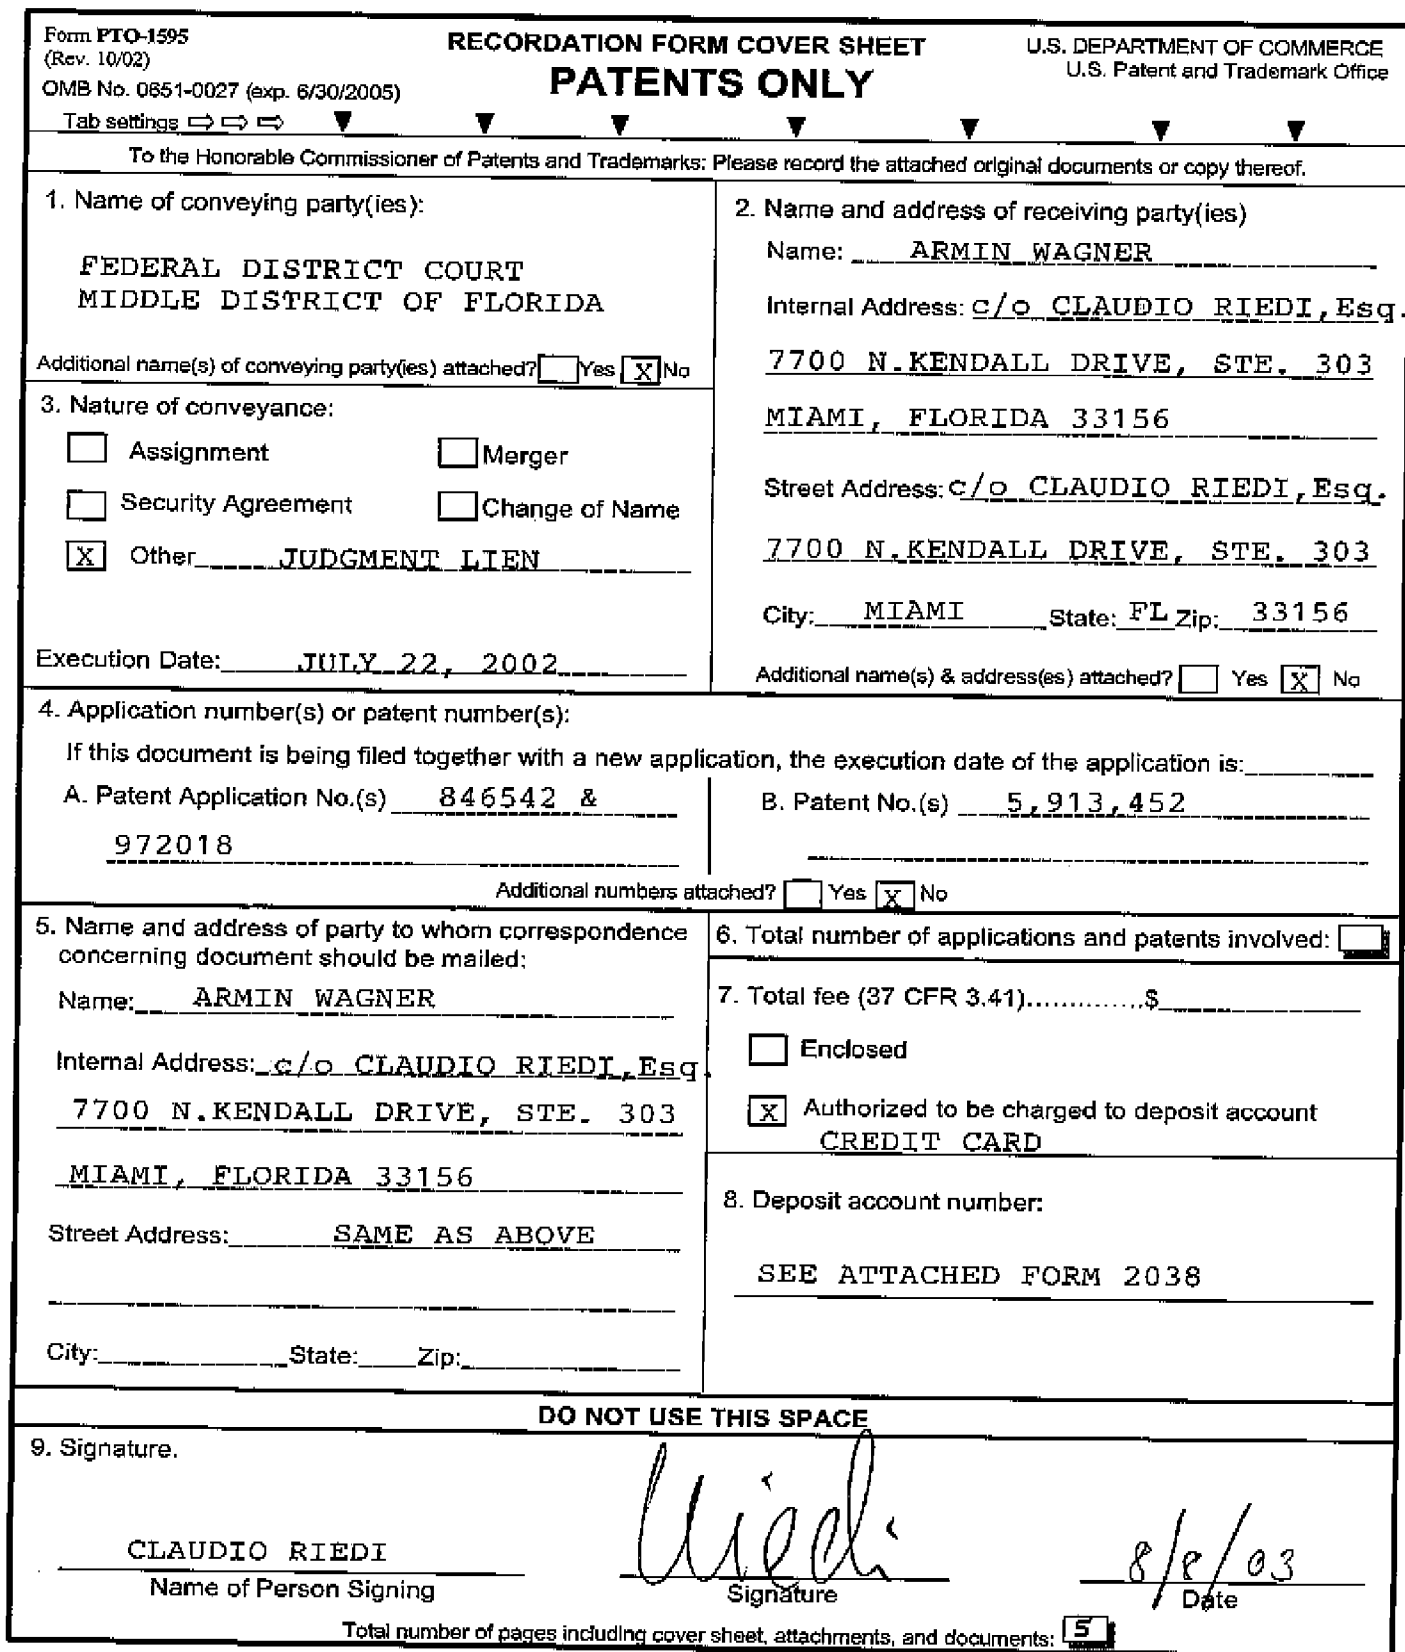 Form PTO-1595
(Rev. 10/02)
OMB No. 0651-0027 (exp. 6/30/2005)
Tab settings ⇨ ⇨ ⇨ ▼ ▼ ▼ ▼ ▼ ▼ ▼
RECORDATION FORM COVER SHEET
PATENTS ONLY
U.S. DEPARTMENT OF COMMERCE
U.S. Patent and Trademark Office
To the Honorable Commissioner of Patents and Trademarks: Please record the attached original documents or copy thereof.
1. Name of conveying party(ies):
FEDERAL DISTRICT COURT
MIDDLE DISTRICT OF FLORIDA
Additional name(s) of conveying party(ies) attached? Yes X No
2. Name and address of receiving party(ies)
Name: ARMIN WAGNER
Internal Address: c/o CLAUDIO RIEDI, Esq.
7700 N.KENDALL DRIVE, STE. 303
MIAMI, FLORIDA 33156
Street Address: c/o CLAUDIO RIEDI, Esq.
7700 N.KENDALL DRIVE, STE. 303
City: MIAMI State: FL Zip: 33156
Additional name(s) & address(es) attached? Yes X No
3. Nature of conveyance:
Assignment Merger
Security Agreement Change of Name
X Other JUDGMENT LIEN
Execution Date: JULY 22, 2002
4. Application number(s) or patent number(s):
If this document is being filed together with a new application, the execution date of the application is:
A. Patent Application No.(s) 846542 &
972018
B. Patent No.(s) 5,913,452
Additional numbers attached? Yes X No
5. Name and address of party to whom correspondence
concerning document should be mailed:
Name: ARMIN WAGNER
Internal Address: c/o CLAUDIO RIEDI, Esq.
7700 N.KENDALL DRIVE, STE. 303
MIAMI, FLORIDA 33156
Street Address: SAME AS ABOVE
City: State: Zip:
6. Total number of applications and patents involved:
7. Total fee (37 CFR 3.41)..............$
Enclosed
X Authorized to be charged to deposit account
CREDIT CARD
8. Deposit account number:
SEE ATTACHED FORM 2038
DO NOT USE THIS SPACE
9. Signature.
CLAUDIO RIEDI
Name of Person Signing
Riedi
Signature
8/8/03
Date
Total number of pages including cover sheet, attachments, and documents: 5